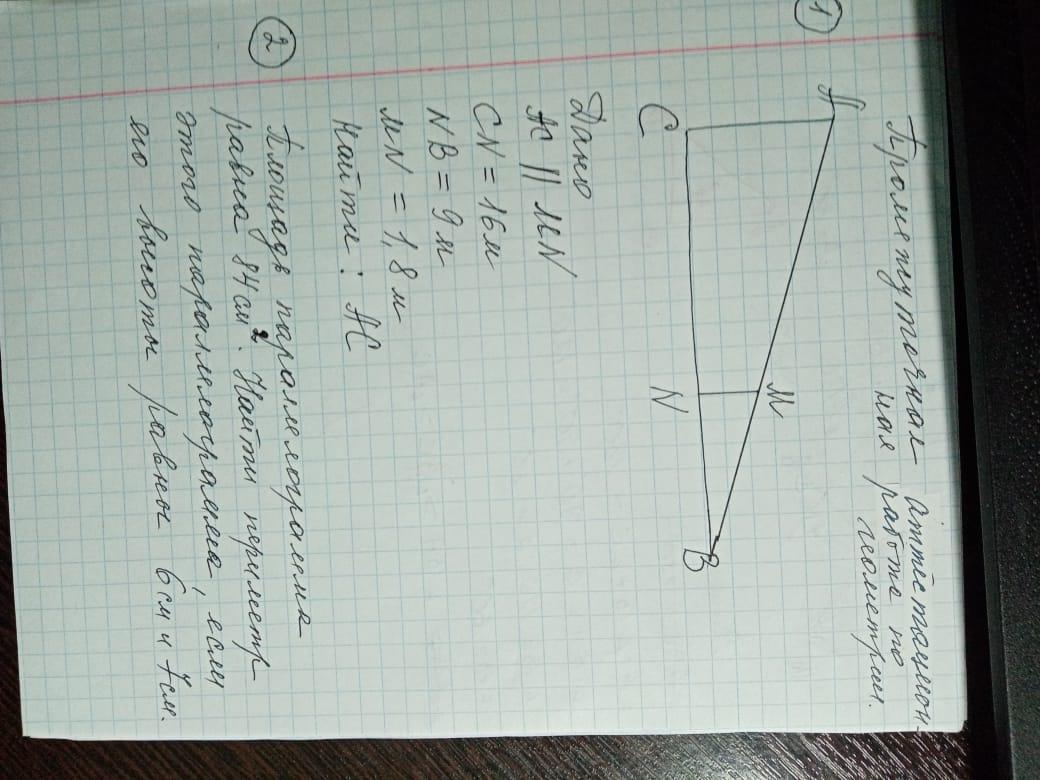 Промежуточная аттестацион-
ная работа по
геометрии.
1
A
M
C
N
B
Дано
AC || MN
CN = 16 м
NB = 9 м
MN = 1,8 м
Найти: AC
2
Площадь параллелограмма
равна 84 см². Найти периметр
этого параллелограмма, если
его высоты равны 6 см и 7 см.